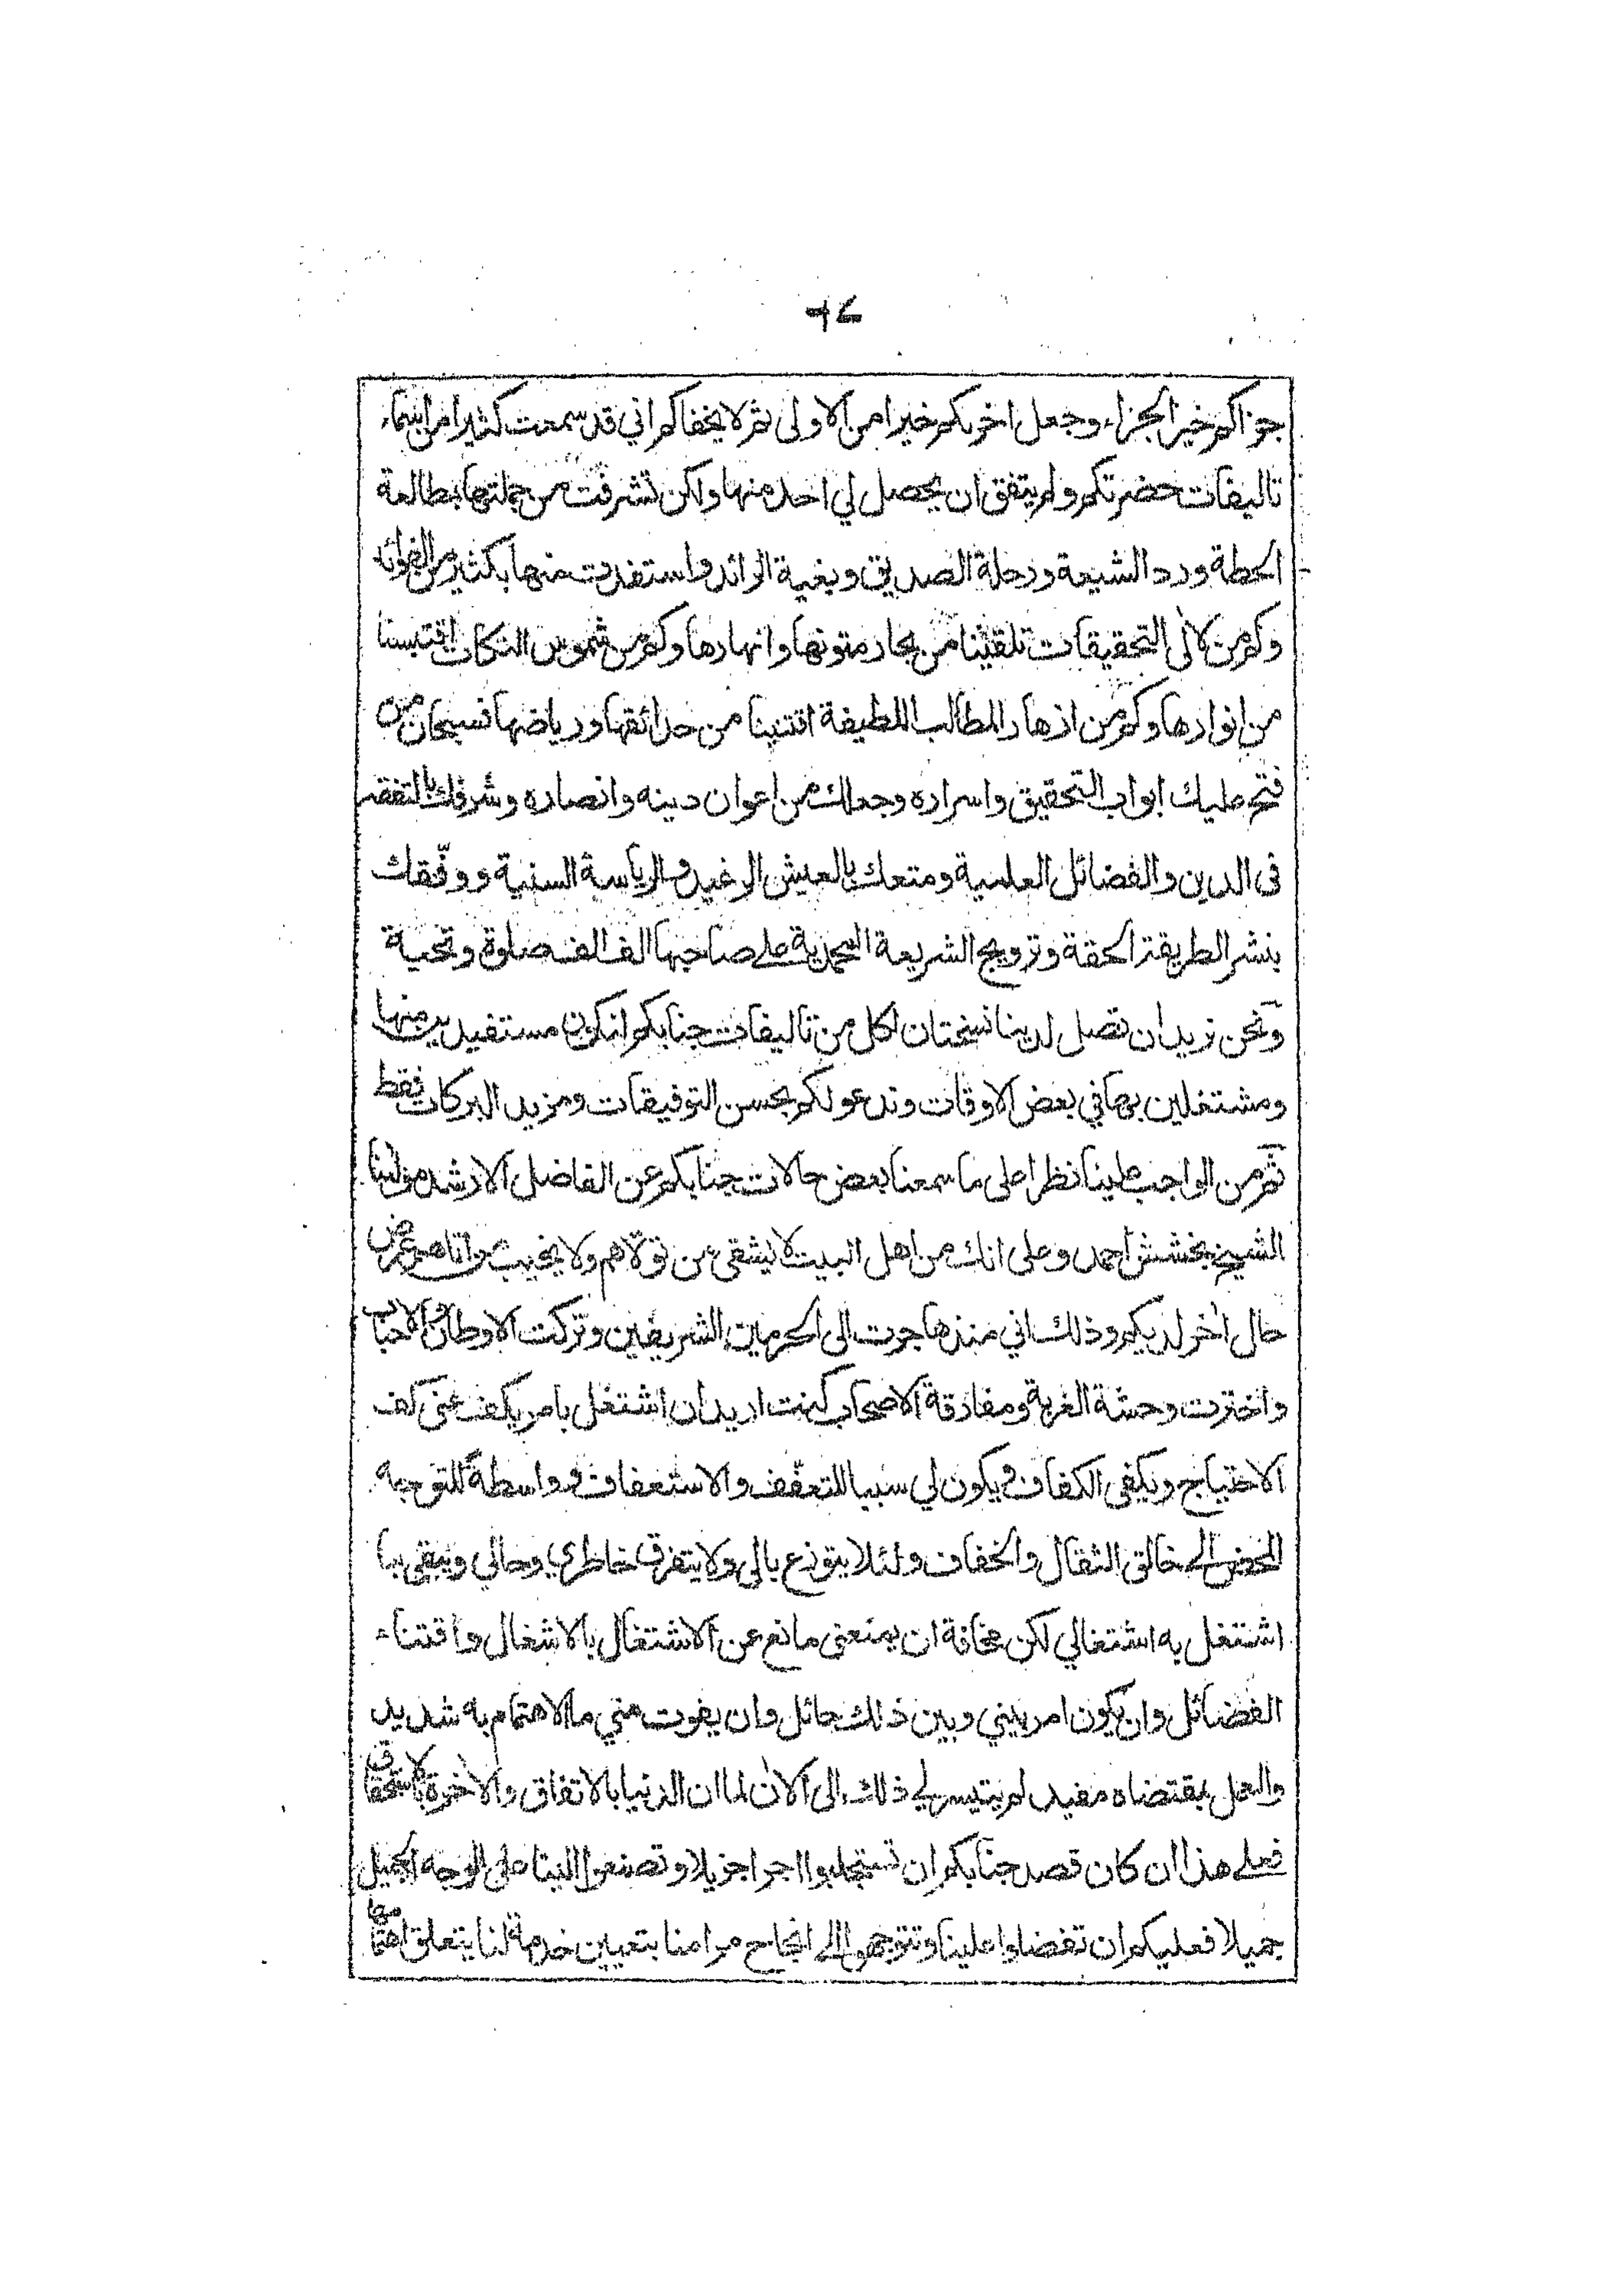 جزاكم خير الجزاء وجعل اخرىكم خيرا من الاولى ثم لا يخفاكم اني قد سمعت كثيرا من اسماء
تاليفات حضرتكم ولم يتفق ان يحصل لي احد منها ولكن تشرفت من جملتها بمطالعة
الحطة ورد الشيعة ورحلة الصديق وبغية الرائد واستفدت منها بكثير من الفوائد
وكم من لألى التحقيقات تلقينا من بحار متونها وانهارها وكم من شموس النكات اقتبسنا
من انوارها وكم من ازهار المطالب اللطيفة اقتنينا من حدائقها ورياضها فسبحان من
فتح عليك ابواب التحقيق واسراره وجعلك من اعوان دينه وانصاره وشرفك بالتفقه
فى الدين والفضائل العلمية ومتعك بالعيش الرغيد والرياسة السنية ووفّقك
بنشر الطريقة الحقة وترويج الشريعة المحمدية على صاحبها الف الف صلوة وتحية
ونحن نريد ان تصل لدينا نسختان لكل من تاليفات جنابكم لنكون مستفيدين منها
ومشتغلين بها في بعض الاوقات وندعو لكم بحسن التوفيقات ومزيد البركات فقط
ثم من الواجب علينا نظرا على ما سمعنا بعض حالات جنابكم عن الفاضل الارشد مولينا
الشيخ بخشش احمد وعلى انك من اهل البيت لا يشقى من تولاهم ولا يخيب من اتاهم عرض
حال اٰخر لديكم وذلك اني منذ هاجرت الى الحرمين الشريفين وتركت الاوطان والاحباب
واخترت وحشة الغربة ومفارقة الاصحاب كنت اريد ان اشتغل بامر يكف عنى كف
الاحتياج ويكفى الكفاف ويكون لي سببا للتعفّف والاستعفاف وواسطة للتوجه
المحض الى خالق الثقال والخفاف ولئلا يتوزع بالى ولا يتفرق خاطري وحالي ويبقى بما
اشتغل به اشتغالي لكن مخافة ان يمنعنى مانع عن الاشتغال بالاشغال واقتناء
الفضائل وان يكون امر بيني وبين ذلك حائل وان يفوت مني ما الاهتمام به شديد
والعمل بمقتضاه مفيد لم يتيسر لى ذلك الى الاٰن لما ان الدنيا بالاتفاق والاٰخرة بالاستحقاق
فعلى هذا ان كان قصد جنابكم ان تستجلبوا اجرا جزيلا وتصنعوا الينا على الوجه الجميل
جميلا فعليكم ان تفضلوا علينا وتتوجهوا الى انجاح مرامنا بتعيين خدمة لنا يتعلق اهتمامها